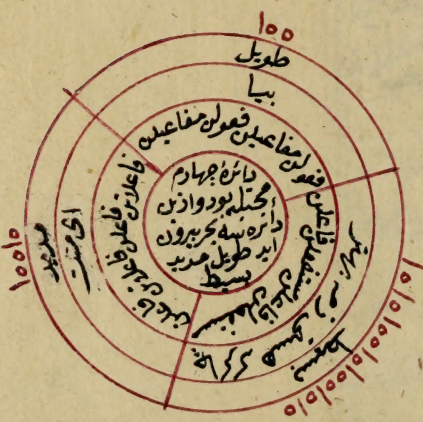 ١٥٥
طویل
بیا
فعولن مفاعیلن فعولن مفاعیلن
فاعلاتن فاعلن فاعلاتن فاعلن
مستفعلن فاعلن مستفعلن فاعلن
مدید
بسیط
دائرهٔ چهارم
مختلفه بود و ازین
دائره سه بحر بیرون
آید طویل مدید
بسیط